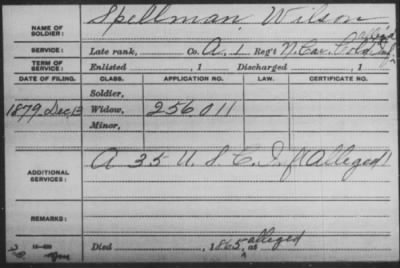 NAME OF SOLDIER: Spellman, Wilson
SERVICE: Late rank, Co. A, 1 Reg't N. Car. Cold Inf
TERM OF SERVICE: Enlisted , 1 Discharged , 1
DATE OF FILING. CLASS. APPLICATION NO. LAW. CERTIFICATE NO.
Soldier,
1879 Dec 13 Widow, 256011
Minor,
ADDITIONAL SERVICES: A 35 U. S. C. I. (Alleged)
REMARKS:
Died , 1865, at alleged